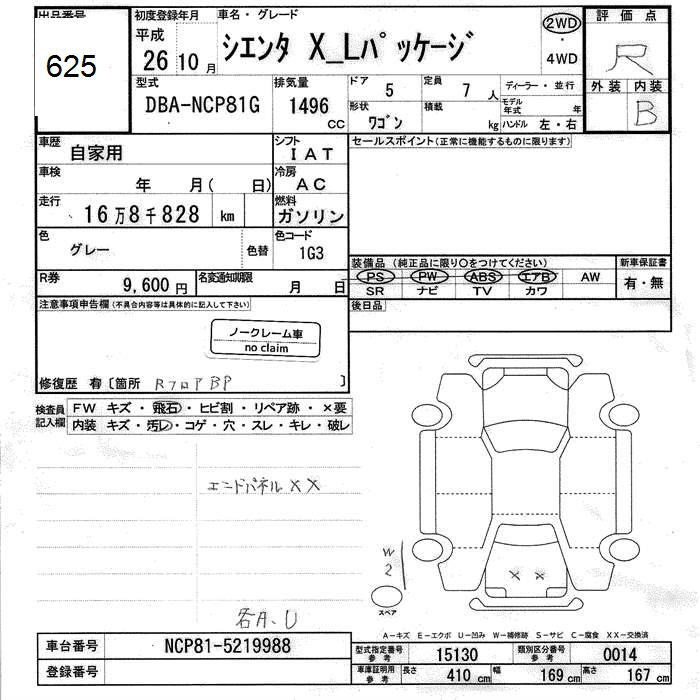 出品番号
625
初度登録年月
平成
26年10月
車名・グレード
シエンタ X_Lパッケージ
2WD
・
4WD
評価点
R
外装 内装
B
型式
DBA-NCP81G
排気量
1496
CC
ドア 5
定員 7人
形状
ワゴン
積載
kg
ディーラー・並行
モデル年式 年
ハンドル 左・右
車歴
自家用
シフト
IAT
セールスポイント(正常に機能するものに限ります)
車検
年 月( 日)
冷房
AC
走行
16万8千828 km
燃料
ガソリン
色
グレー
色替
色コード
1G3
装備品 (純正品に限り〇をつけてください)
PS PW ABS エアB AW
SR ナビ TV カワ
新車保証書
有・無
R券
9,600円
名変通知期限
月 日
後日品
注意事項申告欄(不具合内容等は具体的に記入して下さい)
ノークレーム車
no claim
修復歴 有〔箇所 RフロアBP 〕
検査員記入欄
FW キズ・飛石・ヒビ割・リペア跡・×要
内装 キズ・汚レ・コゲ・穴・スレ・キレ・破レ
エンドパネル××
W
2
× ×
スペア
各A、U
A-キズ E-エクボ U-凹み W-補修跡 S-サビ C-腐食 XX-交換済
車台番号 NCP81-5219988
登録番号
型式指定番号
参考
15130
類別区分番号
参考
0014
車庫証明用
参考
長さ 410 cm
幅 169 cm
高さ 167 cm